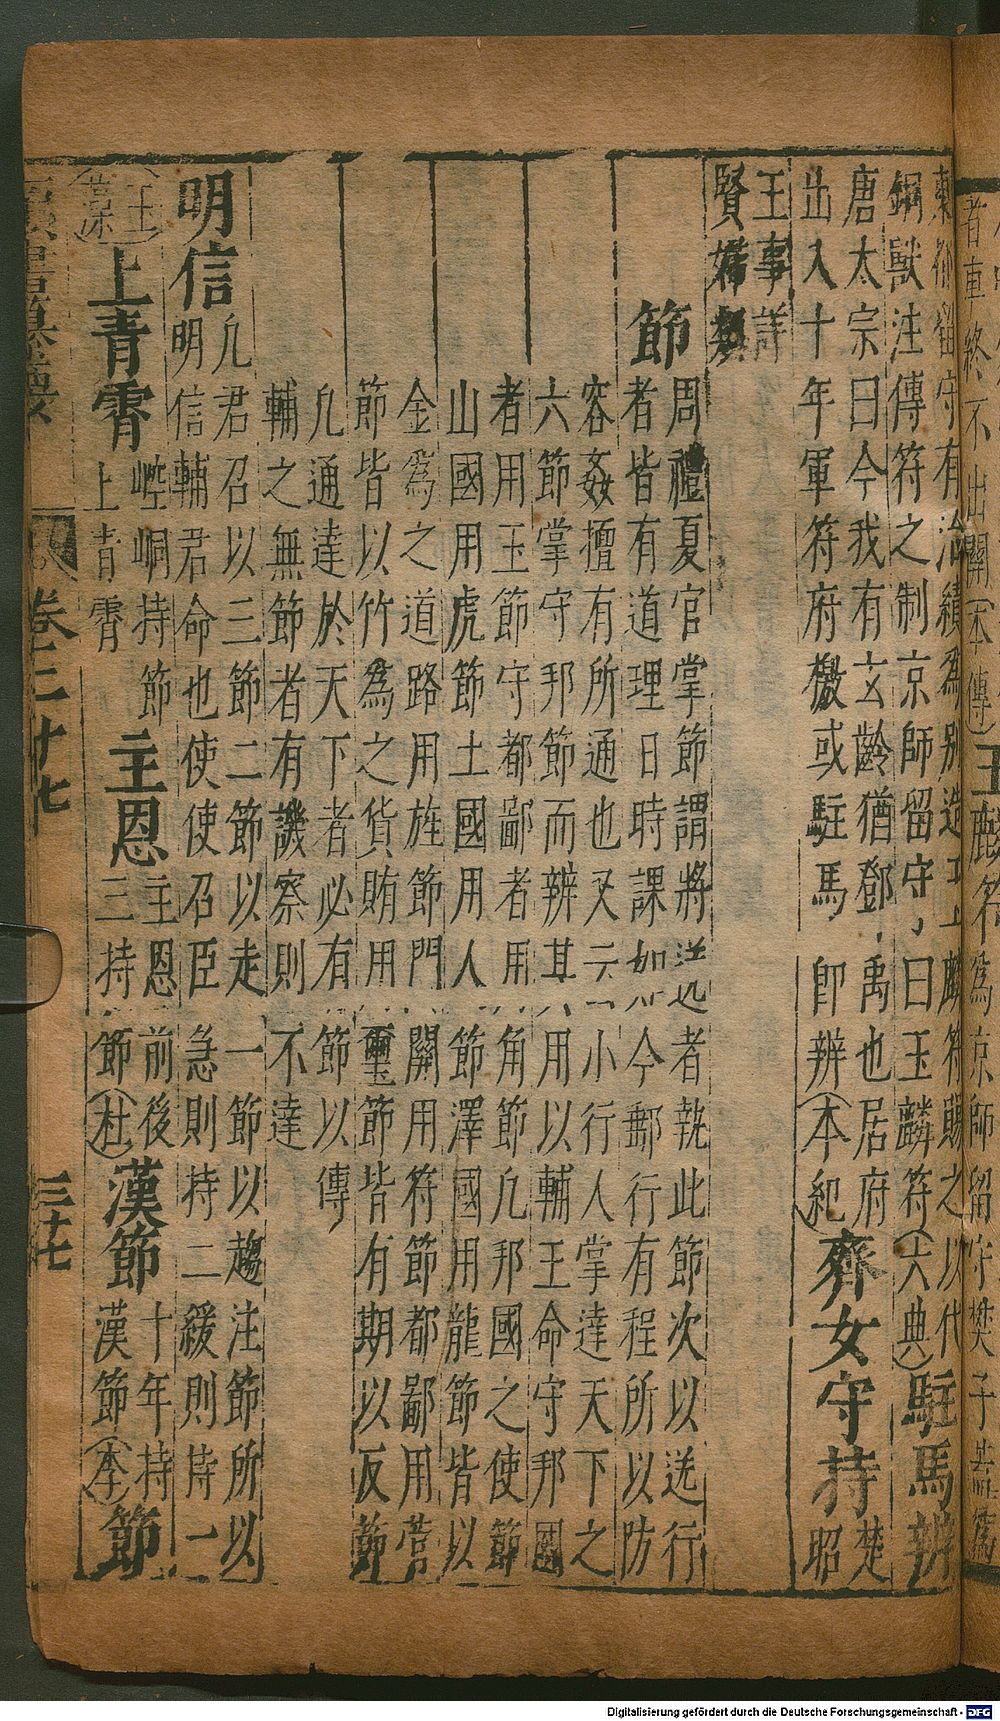 者車終不出關(本傳)玉麟符爲京師留守樊子蓋爲
東都留守有治績爲別造玉麟符賜之以代
銅獸注傳符之制京師留守曰玉麟符(六典)駐馬辨
唐太宗曰今我有玄齡猶鄧禹也居府
出入十年軍符府檄或駐馬即辨(本紀)齊女守持楚昭
王事詳
賢婦類
節周禮夏官掌節謂將送者執此節次以送行
者皆有道理日時課如今郵行有程所以防
容姦擅有所通也又云小行人掌達天下之
六節掌守邦節而辨其用以輔王命守邦國
者用玉節守都鄙者用角節凡邦國之使節
山國用虎節土國用人節澤國用龍節皆以
金爲之道路用旌節門關用符節都鄙用管
節皆以竹爲之貨賄用璽節皆有期以反節
凡通達於天下者必有節以傳
輔之無節者有譏察則不達
明信凡君召以三節二節以走一節以趨注節所以
明信輔君命也使使召臣急則持二緩則持一
(王漢)上青霄崆峒持節上青霄主恩主恩前後三持節(杜)漢節十年持漢節(李)節
卷三十七 三十七
Digitalisierung gefördert durch die Deutsche Forschungsgemeinschaft - DFG